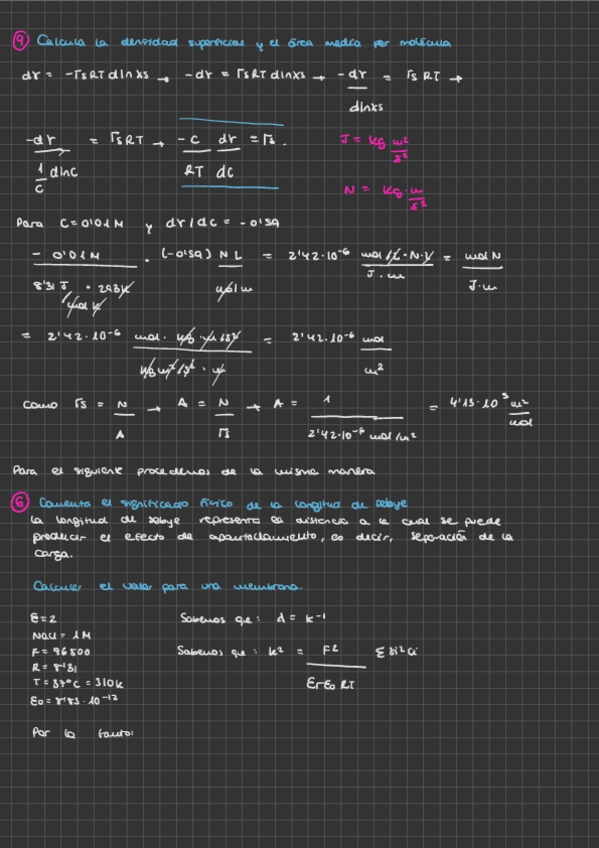 9 Calcula la densidad superficial y el área media por molécula
dγ = -Γs RT dlnxs → -dγ = Γs RT dlnxs → -dγ / dlnxs = Γs RT →
-dγ / (1/C dlnC) = Γs RT → -C/RT dγ/dC = Γs.
J = kg m²/s²
N = kg · m/s²
Para C = 0'01 M y dγ/dC = -0'59
- 0'01 M / (8'31 J/mol K · 293K) · (-0'59) N L / mol m = 2'42·10⁻⁶ mol/L · N · L / J · m = mol N / J·m
= 2'42·10⁻⁶ mol · kg · m/s² / kg m²/s² · m = 2'42·10⁻⁶ mol/m²
como Γs = N/A → A = N/Γs → A = 1 / 2'42·10⁻⁶ mol/m² = 4'13·10⁵ m²/mol
Para el siguiente procedemos de la misma manera
6 Comenta el significado físico de la longitud de debye
La longitud de debye representa la distancia a la cual se puede
producir el efecto de apantallamiento, es decir, separación de la
carga.
Calcular el valor para una membrana.
ε = 2
NaCl = 1M
F = 96500
R = 8'31
T = 37°C = 310K
ε0 = 8'85·10⁻¹²
Sabemos que: d = k⁻¹
Sabemos que: k² = F² / εrε0 RT Σ zi² ci
Por lo tanto: